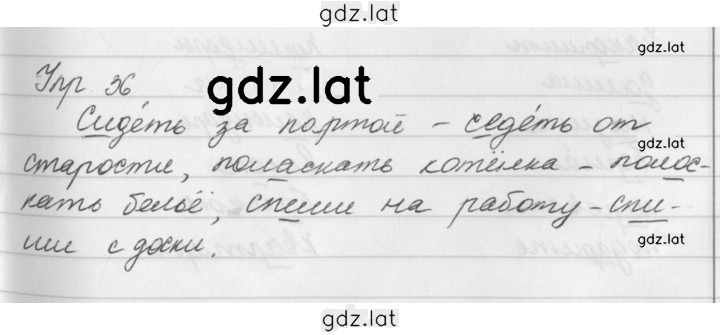 gdz.lat
gdz.lat
Упр. 36
gdz.lat
Сиде́ть за партой – седе́ть от
gdz.lat
старости, поласкать котёнка – полос-
кать бельё, спеши на работу – спи-
ши с доски.
gdz.lat
gdz.lat